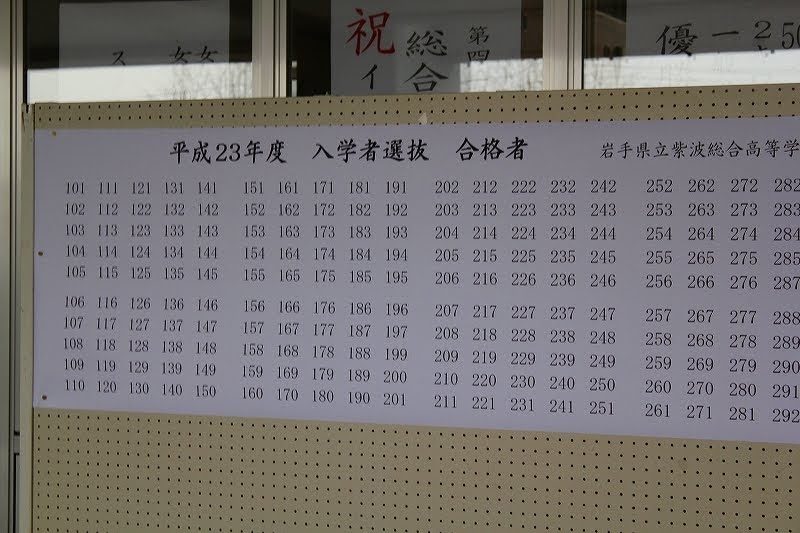 祝 総合 第四
イ
優一 2 50
ス 女女
平成23年度 入学者選抜 合格者 岩手県立紫波総合高等学
101 111 121 131 141 151 161 171 181 191 202 212 222 232 242 252 262 272 282
102 112 122 132 142 152 162 172 182 192 203 213 223 233 243 253 263 273 283
103 113 123 133 143 153 163 173 183 193 204 214 224 234 244 254 264 274 284
104 114 124 134 144 154 164 174 184 194 205 215 225 235 245 255 265 275 285
105 115 125 135 145 155 165 175 185 195 206 216 226 236 246 256 266 276 287
106 116 126 136 146 156 166 176 186 196 207 217 227 237 247 257 267 277 288
107 117 127 137 147 157 167 177 187 197 208 218 228 238 248 258 268 278 289
108 118 128 138 148 158 168 178 188 199 209 219 229 239 249 259 269 279 290
109 119 129 139 149 159 169 179 189 200 210 220 230 240 250 260 270 280 291
110 120 130 140 150 160 170 180 190 201 211 221 231 241 251 261 271 281 292